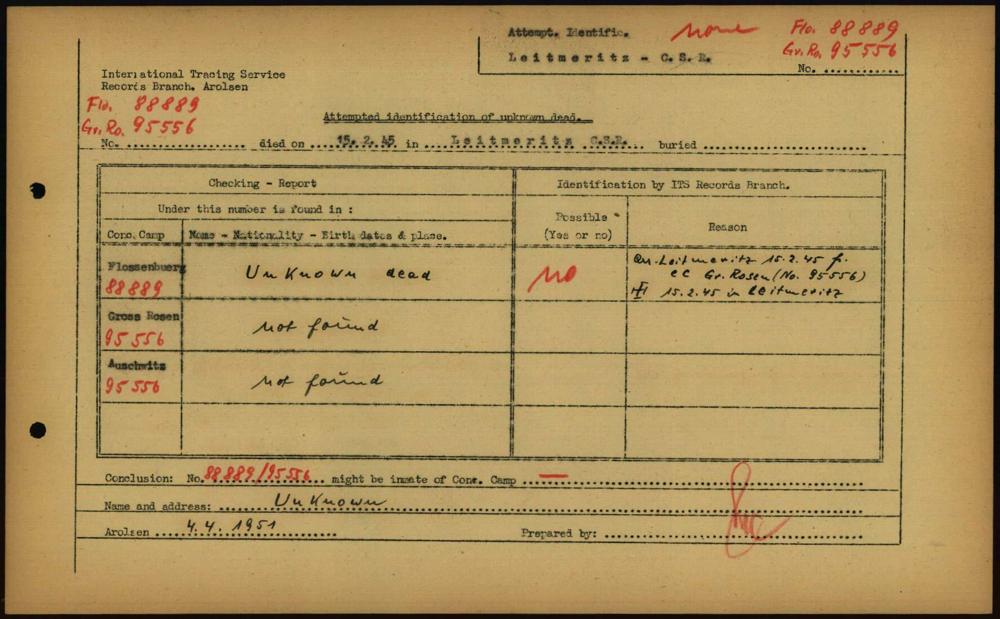 Attempt. Identific. none Flo. 88889
Leitmeritz - C.S.R. Gr.Ro. 95556
No. ............
International Tracing Service
Records Branch. Arolsen
Flo. 88889
Gr.Ro. 95556
Attempted identification of unknown dead.
No. .................. died on ....15.2.45 in ....Leitmeritz C.S.R. buried ...........................
Checking - Report Identification by ITS Records Branch.
Under this number is found in :
Possible
Conc. Camp Name - Nationality - Birth dates & place. (Yes or no) Reason
Flossenbuerg Unknown dead no Leitmeritz 15.2.45 f.
88889 CC Gr. Rosen (No. 95556)
15.2.45 in Leitmeritz
Gross Rosen not found
95556
Auschwitz not found
95556
Conclusion: No. 88889/95556 might be inmate of Conc. Camp ....—....
Name and address: ........Unknown........
Arolsen ....4.4.1951........ Prepared by: ................